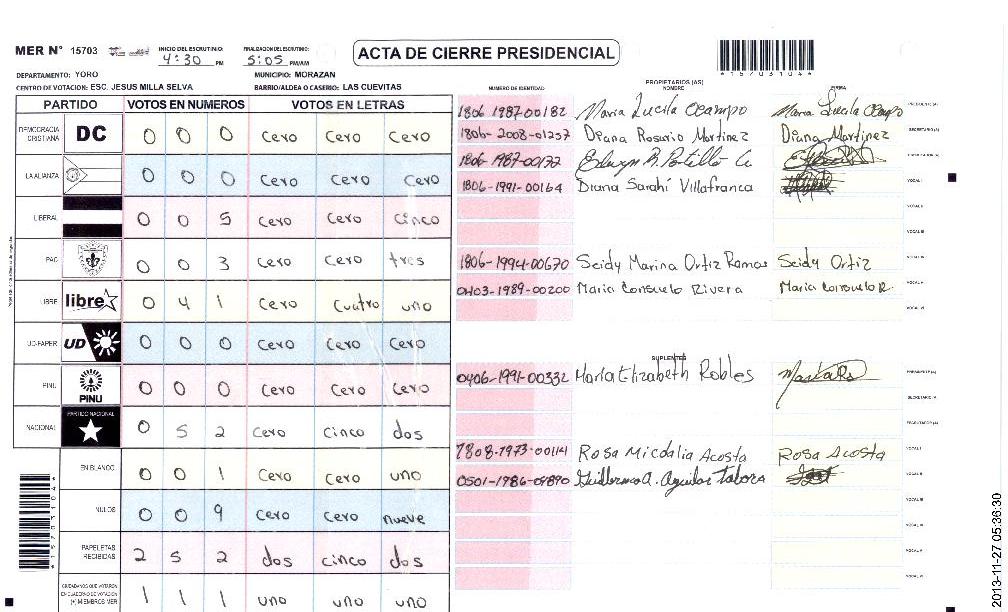 MER N° 15703
INICIO DEL ESCRUTINIO: 4:30 PM
FINALIZACION DEL ESCRUTINIO: 5:05 PM/AM
ACTA DE CIERRE PRESIDENCIAL
*15703104*
DEPARTAMENTO: YORO
MUNICIPIO: MORAZAN
CENTRO DE VOTACION: ESC. JESUS MILLA SELVA
BARRIO/ALDEA O CASERIO: LAS CUEVITAS
PARTIDO VOTOS EN NUMEROS VOTOS EN LETRAS
DEMOCRACIA CRISTIANA DC 0 0 0 cero cero cero
LA ALIANZA 0 0 0 cero cero cero
LIBERAL 0 0 5 cero cero cinco
PAC 0 0 3 cero cero tres
LIBRE libre 0 4 1 cero cuatro uno
UD-FAPER UD 0 0 0 cero cero cero
PINU PINU 0 0 0 cero cero cero
NACIONAL PARTIDO NACIONAL 0 5 2 cero cinco dos
EN BLANCO 0 0 1 cero cero uno
NULOS 0 0 9 cero cero nueve
PAPELETAS RECIBIDAS 2 5 2 dos cinco dos
CIUDADANOS QUE VOTARON EN CUADERNO DE VOTACION (+) MIEMBROS MER 1 1 1 uno uno uno
NUMERO DE IDENTIDAD PROPIETARIOS (AS) NOMBRE FIRMA
1806 1987-00182 Maria Lucila Ocampo Maria Lucila Ocampo PRESIDENTE (A)
1806-2008-01257 Diana Rosario Martinez Diana Martinez SECRETARIO (A)
1806-1987-00172 Edwyn R. Portillo ESCRUTADOR (A)
1806-1991-00164 Diana Sarahí Villafranca VOCAL I
VOCAL II
VOCAL III
1806-1994-00670 Seidy Marina Ortiz Ramos Seidy Ortiz VOCAL IV
0403-1989-00200 Maria Consuelo Rivera Maria Consuelo R. VOCAL V
VOCAL VI
SUPLENTES
0406-1991-00332 María Elizabeth Robles PRESIDENTE (A)
SECRETARIO (A)
ESCRUTADOR (A)
1808-1973-00141 Rosa Micdalia Acosta Rosa Acosta VOCAL I
0501-1986-09890 Guillermo A. Aguilar Tabora VOCAL II
VOCAL III
VOCAL IV
VOCAL V
VOCAL VI
2013-11-27 05:36:30